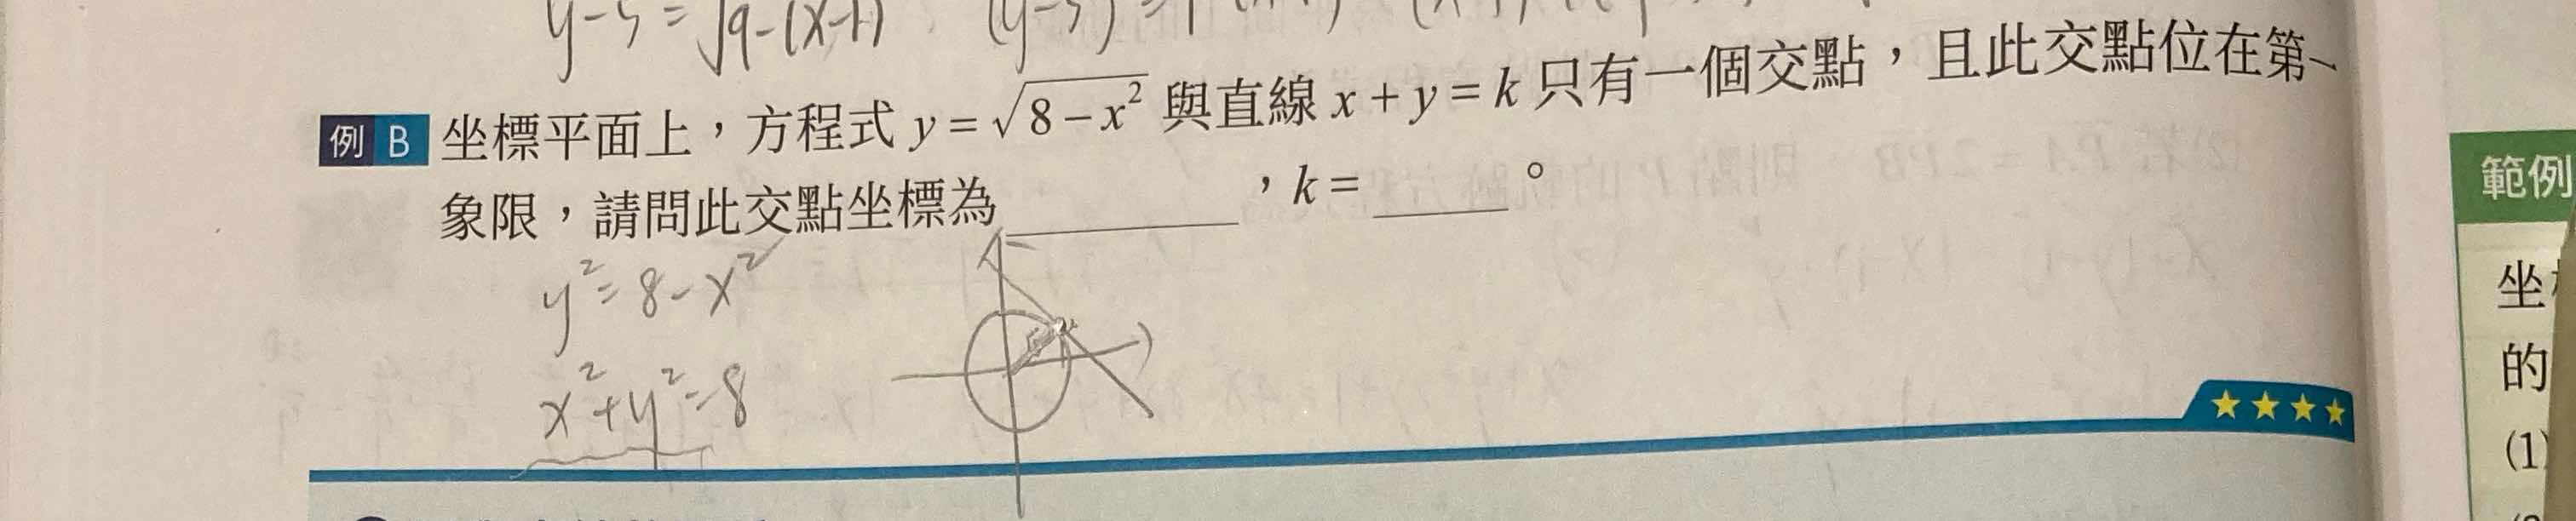 y-5=√9-(x-1)
例 B 坐標平面上，方程式 y = √8 − x² 與直線 x + y = k 只有一個交點，且此交點位在第一
象限，請問此交點坐標為＿＿＿＿，k = ＿＿＿。
y²=8-x²
x²+y²=8
範例
坐
的
(1)